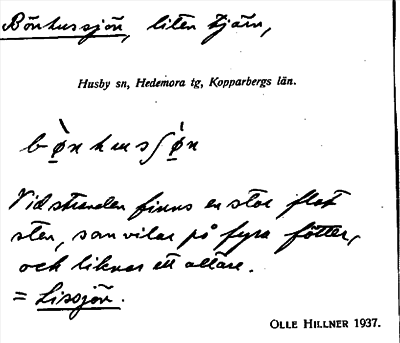 Bönhussjön, liten tjärn,
Husby sn, Hedemora tg, Kopparbergs län.
bø̀nhusʃø̀n
Vid stranden finns en stor flat
sten, som vilar på fyra fötter,
och liknar ett altare.
= Lissjön.
OLLE HILLNER 1937.